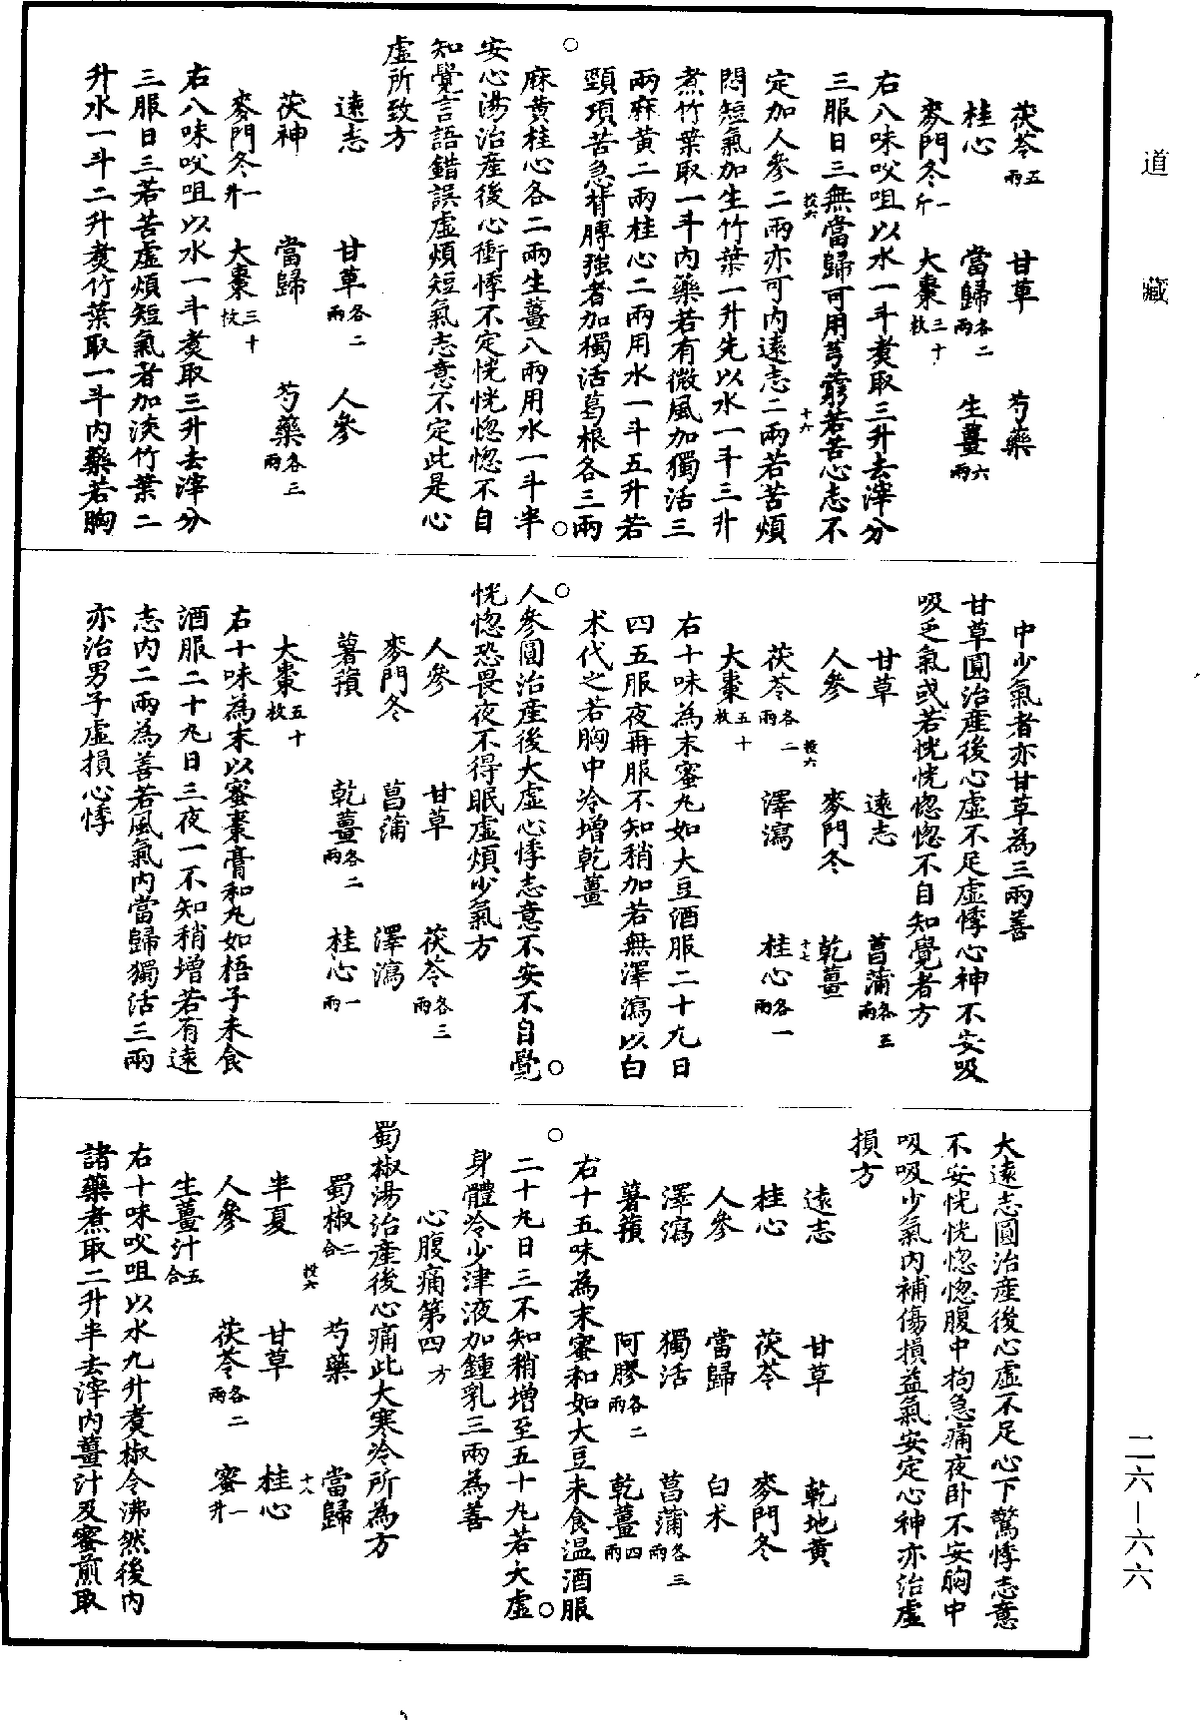 道藏
茯苓五兩　甘草　芍藥
桂心　當歸各二兩　生薑六兩
麥門冬一斤　大棗三十枚
右八味㕮咀以水一斗煑取三升去滓分
三服日三無當歸可用芎藭若苦心志不
定加人參二兩亦可內遠志二兩若苦煩
悶短氣加生竹葉一升先以水一斗三升
煮竹葉取一斗內藥若有微風加獨活三
兩麻黃二兩桂心二兩用水一斗五升若
頸項苦急背膊强者加獨活葛根各三兩
麻黃桂心各二兩生薑八兩用水一斗半
安心湯治產後心衝悸不定恍恍惚惚不自
知覺言語錯誤虛煩短氣志意不定此是心
虛所致方
遠志　甘草各二兩　人參
茯神　當歸　芍藥各三兩
麥門冬一升　大棗三十枚
右八味㕮咀以水一斗煑取三升去滓分
三服日三若苦虛煩短氣者加淡竹葉二
升水一斗二升煑竹葉取一斗內藥若胸
中少氣者亦甘草為三兩善
甘草圓治產後心虛不足虛悸心神不安吸
吸乏氣或若恍恍惚惚不自知覺者方
甘草　遠志　菖蒲各三兩
人參　麥門冬　乾薑
茯苓各二兩　澤瀉　桂心各一兩
大棗五十枚
右十味為末蜜丸如大豆酒服二十丸日
四五服夜再服不知稍加若無澤瀉以白
术代之若胸中冷增乾薑
人參圓治產後大虛心悸志意不安不自覺
恍惚恐畏夜不得眠虛煩少氣方
人參　甘草　茯苓各三兩
麥門冬　菖蒲　澤瀉
薯蕷　乾薑各二兩　桂心一兩
大棗五十枚
右十味為末以蜜棗膏和丸如梧子未食
酒服二十丸日三夜一不知稍增若有遠
志內二兩為善若風氣內當歸獨活三兩
亦治男子虛損心悸
大遠志圓治產後心虛不足心下驚悸志意
不安恍恍惚惚腹中拘急痛夜臥不安胸中
吸吸少氣內補傷損益氣安定心神亦治虛
損方
遠志　甘草　乾地黃
桂心　茯苓　麥門冬
人參　當歸　白术
澤瀉　獨活　菖蒲各三兩
薯蕷　阿膠各二兩　乾薑四兩
右十五味為末蜜和如大豆未食温酒服
二十丸日三不知稍增至五十丸若大虛
身體冷少津液加鍾乳三兩為善
心腹痛第四　方
蜀椒湯治產後心痛此大寒冷所為方
蜀椒二合　芍藥　當歸
半夏　甘草　桂心
人參　茯苓各二兩　蜜一升
生薑汁五合
右十味㕮咀以水九升煑椒令沸然後內
諸藥煮取二升半去滓內薑汁及蜜煎取
投六　十六
投六　十七
投六　十八
二六—六六